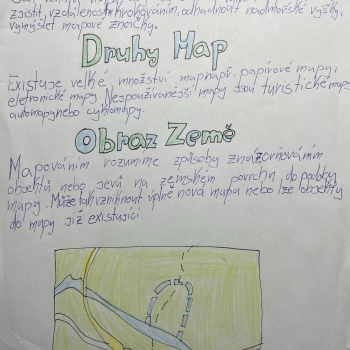 zjistit, vzdálenost krokováním, odhadnout nadmořské výšky,
vymýšlet mapové značky.
Druhy Map
Existuje velké množství map např. papírové mapy,
eletronické mapy, Nejpoužívanější mapy jsou turistické mapy
automapy nebo cyklomapy.
Obraz Země
Mapováním rozumíme způsoby znázorňováním
objektů nebo jevů na zemském povrchu, do podoby
mapy. Může tak vzniknout úplně nová mapa nebo lze objekty
do mapy již existující.